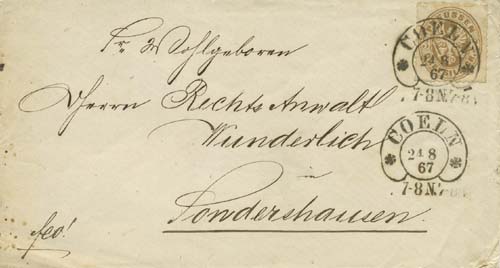 Sr. Wohlgeboren
Herrn Rechts Anwalt
Wunderlich
in
Sondershausen.
fco!
COELN
24 8
67
7-8 N.
COELN
24 8
67
7-8 N.